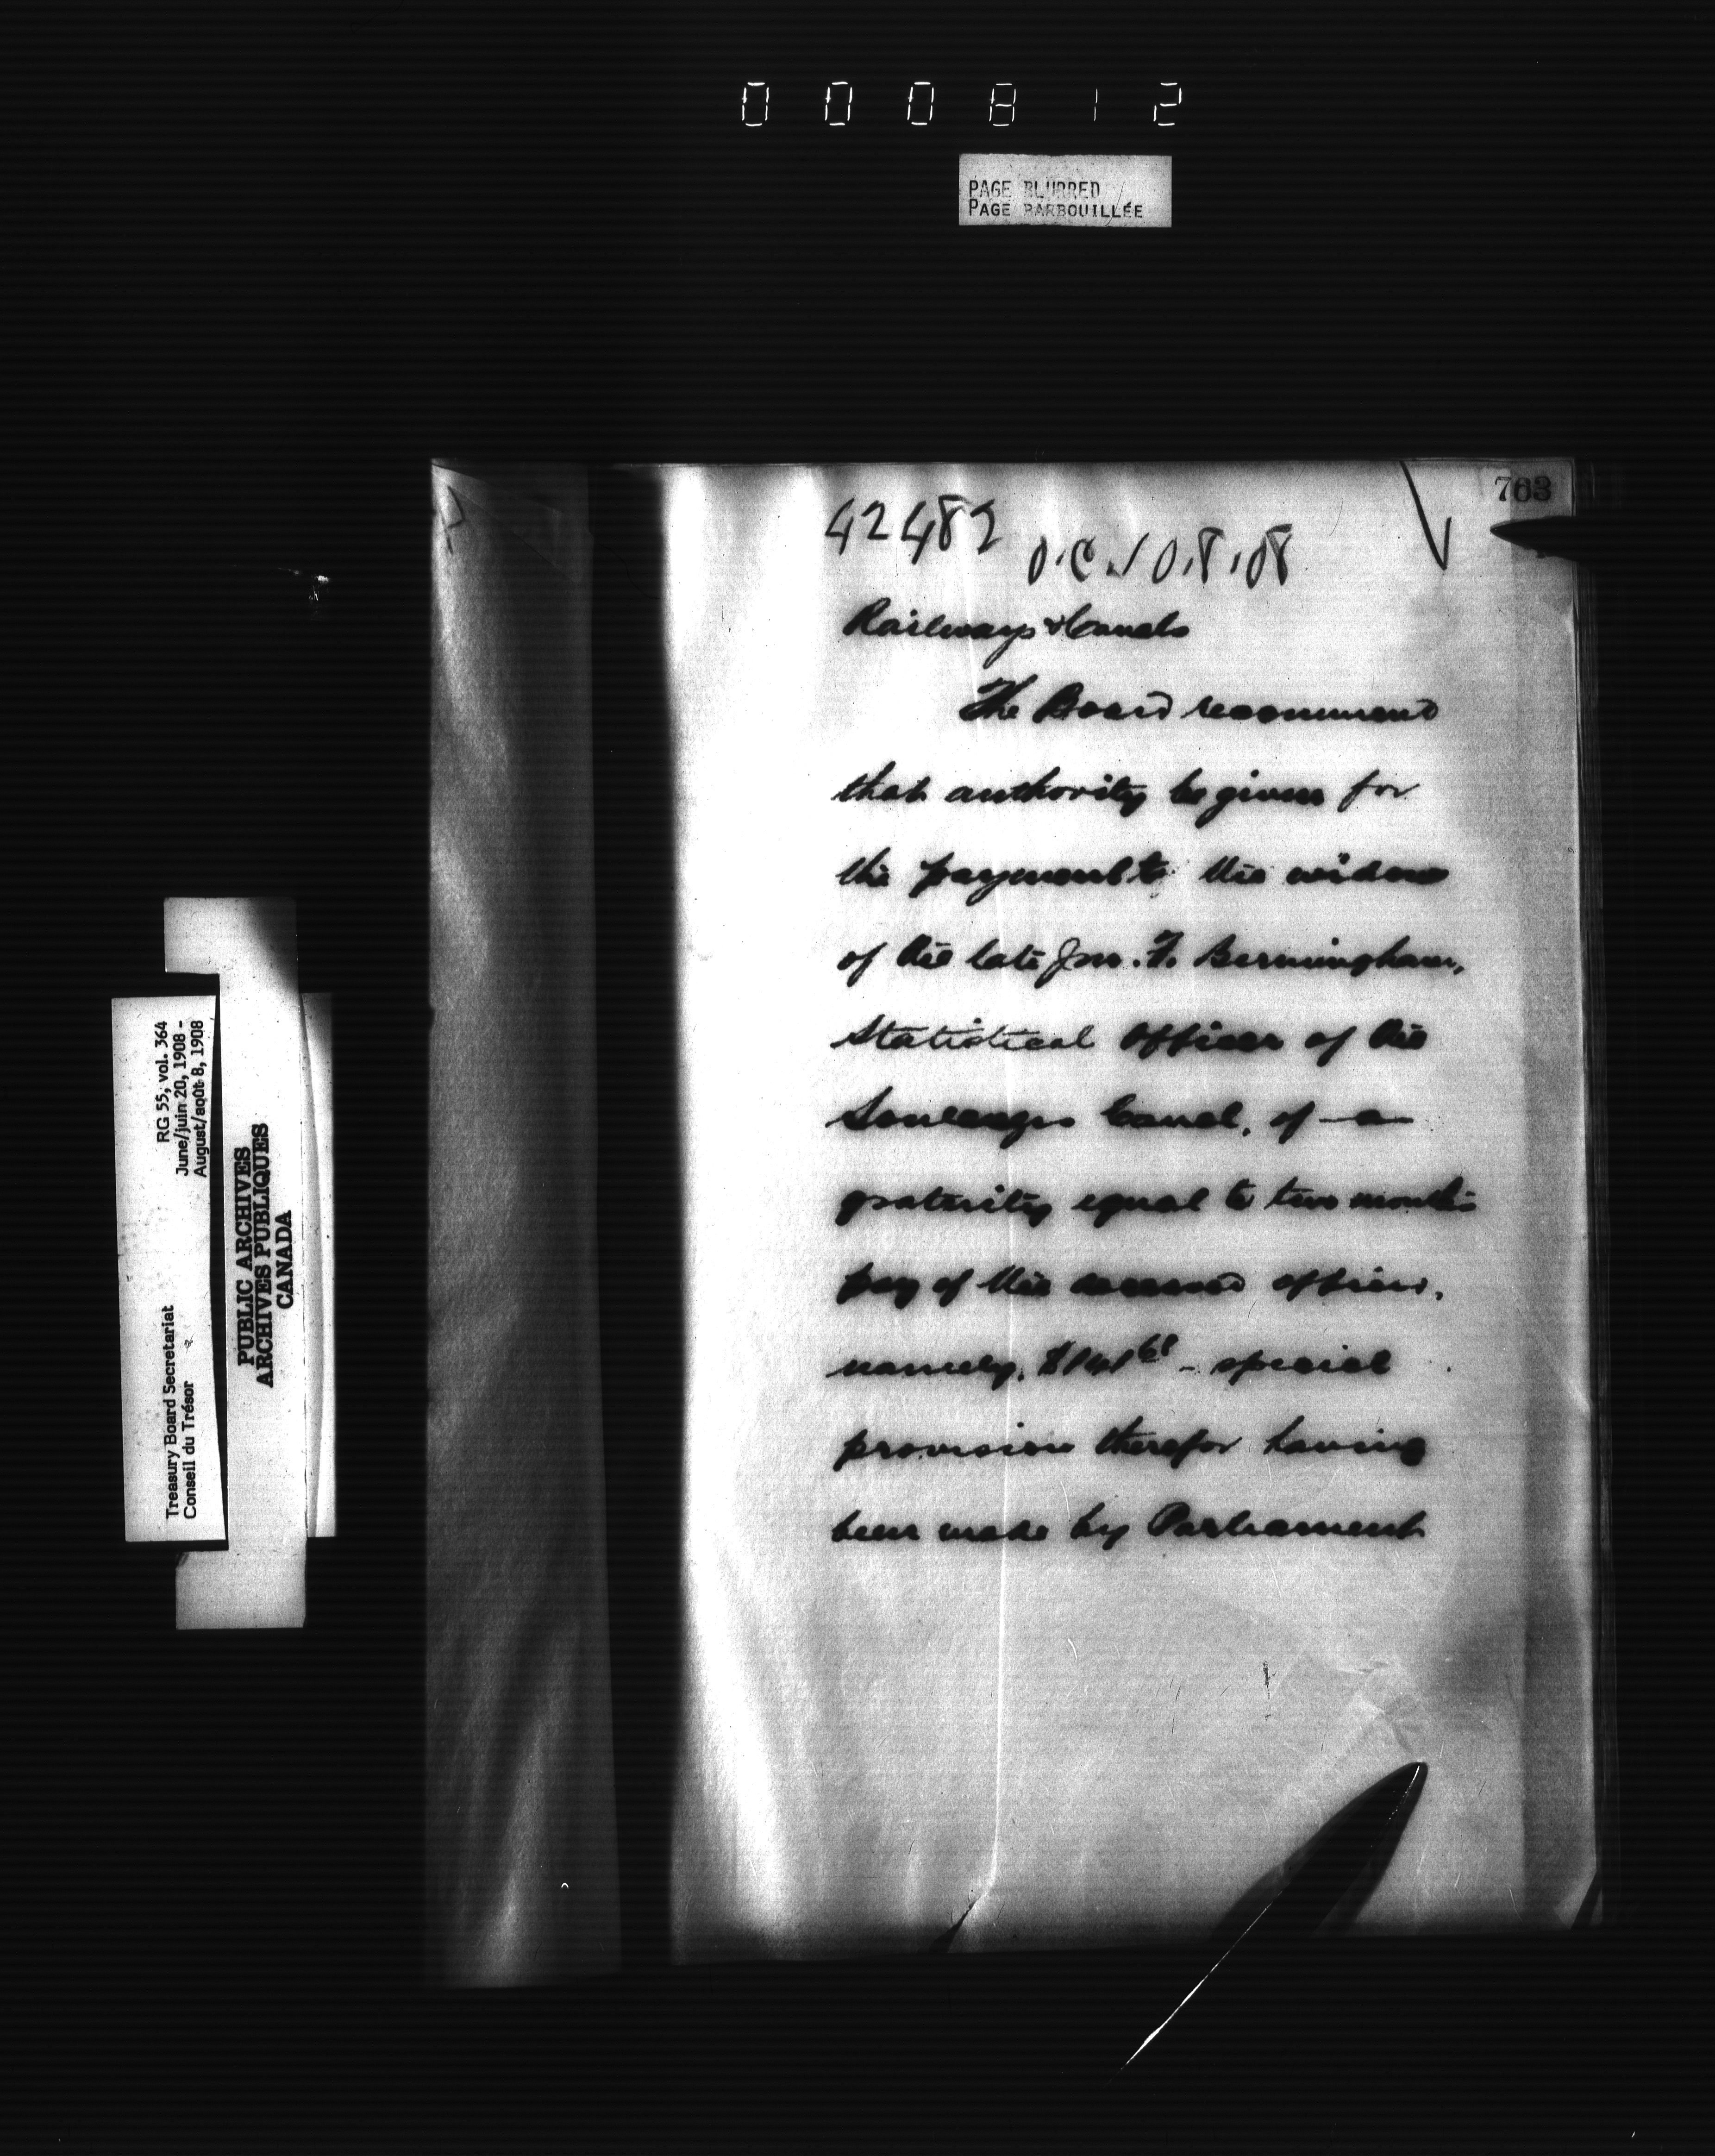 000812
PAGE BLURRED
PAGE BARBOUILLÉE
763
42482 O.C. 10.8.08
Railways & Canals
The Board recommend
that authority be given for
the payment to the widow
of the late Jno. F. Bermingham,
Statistical Officer of the
Soulanges Canal, of a
gratuity equal to two months
pay of the deceased officer,
namely, $141 68 - special
provision therefor having
been made by Parliament
RG 55, vol. 364
June/juin 20, 1908 -
August/août 8, 1908
Treasury Board Secretariat
Conseil du Trésor
PUBLIC ARCHIVES
ARCHIVES PUBLIQUES
CANADA